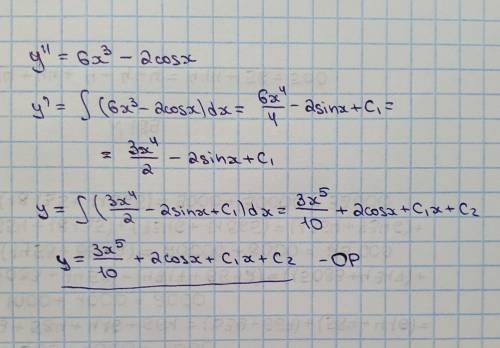 y'' = 6x³ − 2cosx
y' = ∫ (6x³ − 2cosx)dx = 6x⁴/4 − 2sinx + C₁ =
= 3x⁴/2 − 2sinx + C₁
y = ∫ (3x⁴/2 − 2sinx + C₁)dx = 3x⁵/10 + 2cosx + C₁x + C₂
y = 3x⁵/10 + 2cosx + C₁x + C₂ − OP